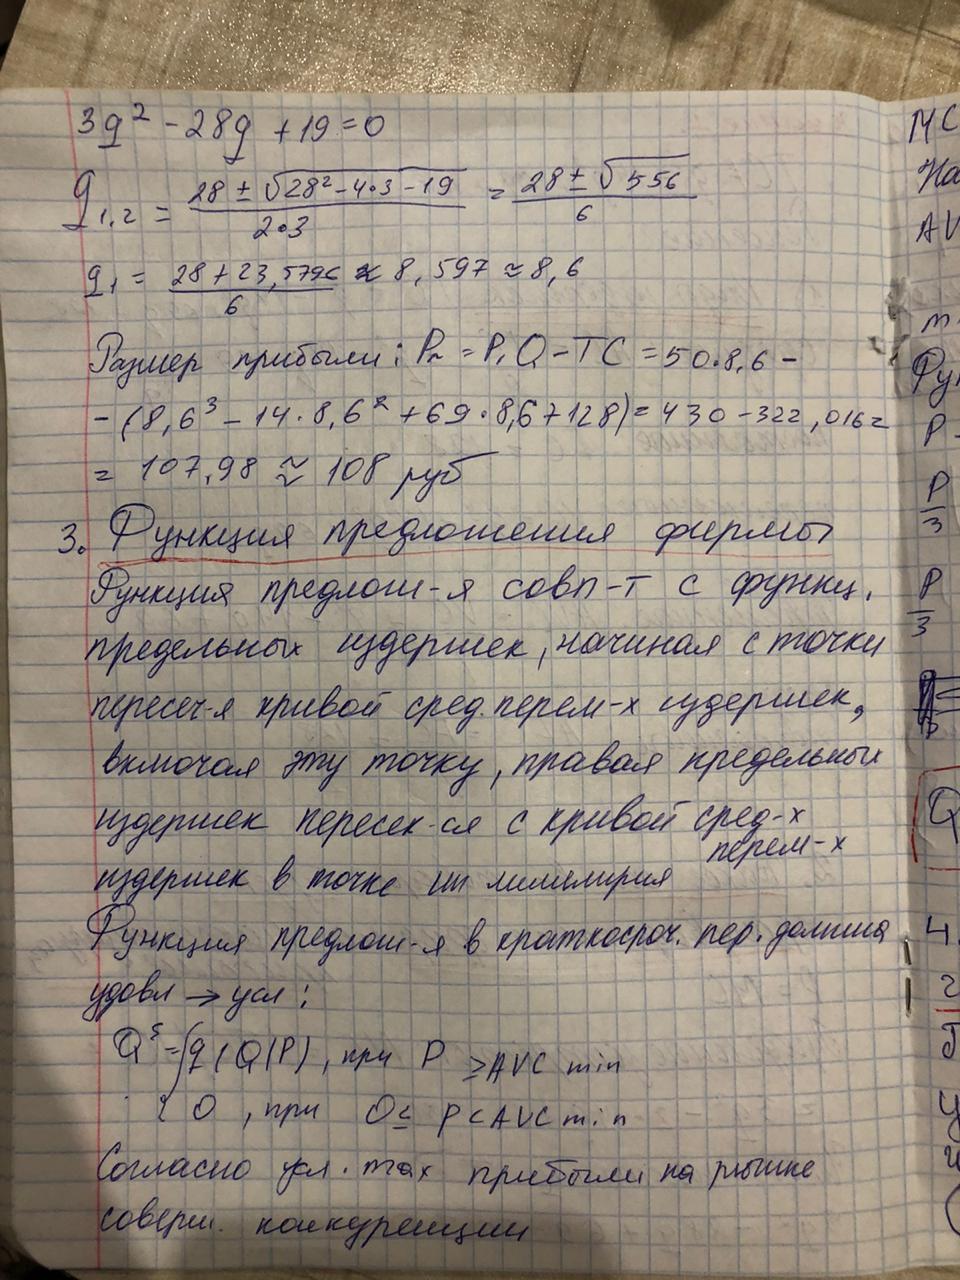 3q² - 28q + 19 = 0
q₁,₂ = (28 ± √(28² - 4·3 - 19)) / (2·3) = (28 ± √556) / 6
q₁ = (28 + 23,5796) / 6 ≈ 8,597 ≈ 8,6
Размер прибыли: Pr = P₁Q - TC = 50·8,6 -
- (8,6³ - 14·8,6² + 69·8,6 + 128) = 430 - 322,016 =
= 107,98 ≈ 108 руб
3. Функция предложения фирмы
Функция предлож-я совп-т с функц.
предельных издержек, начиная с точки
пересеч-я кривой сред. перем-х издержек,
включая эту точку, правая предельных
издержек пересек-ся с кривой сред-х
перем-х
издержек в точке их
Функция предлож-я в краткосроч. пер. должна
удовл → усл:
Qˢ = { q (Q(P), при P ≥ AVC min
0, при 0 ≤ P < AVC min
Согласно усл. max прибыли на рынке
соверш. конкуренции
MC
На
AV
m
Фун
P -
P
3
P
3
Q
4.